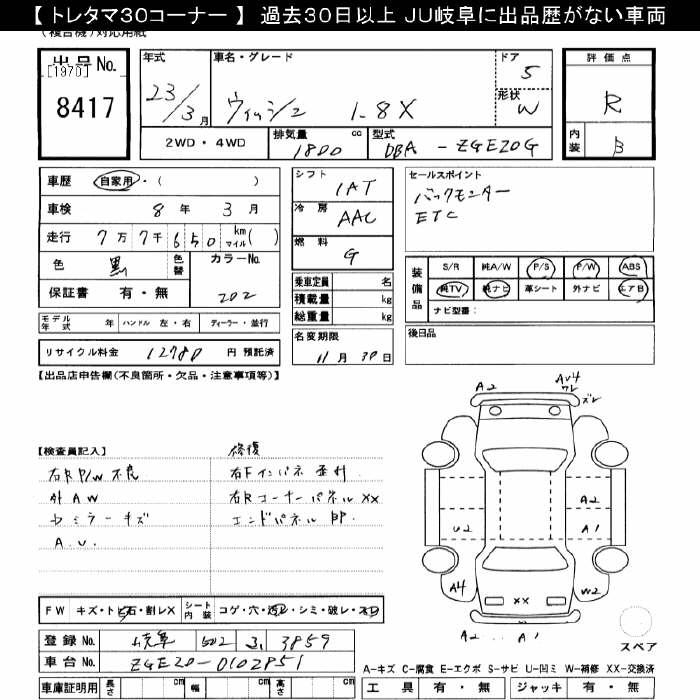 【 トレタマ30コーナー 】 過去30日以上 JU岐阜に出品歴がない車両
(複合機)対応用紙
出品No.
[1970]
8417
年式
23/3月
車名・グレード
ウィッシュ 1.8X
ドア
5
形状
W
評価点
R
内装
B
2WD・4WD
排気量 cc
1800
型式
DBA - ZGE20G
車歴 自家用・( )
車検 8 年 3 月
走行 7万7千650 km マイル( )
色 黒 色替 カラーNo.
保証書 有・無 202
モデル年式 年 ハンドル 左・右 ディーラー・並行
リサイクル料金 12780 円 預託済
シフト
IAT
冷房
AAC
燃料
G
乗車定員 名
積載量 kg
総重量 kg
名変期限
11月30日
セールスポイント
バックモニター
ETC
装備品
S/R 純A/W P/S P/W ABS
純TV 純ナビ 革シート 外ナビ エアB
ナビ型番:
後日品
【出品店申告欄(不良箇所・欠品・注意事項等)】
【検査員記入】
修復
右R P/W 不良
右Fインパネ
外AW
右RコーナーパネルXX
ミラーキズ
エンドパネル
A.U.
A2
AV4
ズレ
A2
U2
A1
A4
W2
XX
A2
A1
スペア
FW キズ・トビ石・割レX シート内装 コゲ・穴・シミ・破レ
登録No. 岐阜 502 3859
車台No. ZGE20-0102851
車庫証明用 長さ cm 幅 cm 高さ cm
A-キズ C-腐食 E-エクボ S-サビ U-凹ミ W-補修 XX-交換済
工具 有・無 ジャッキ 有・無